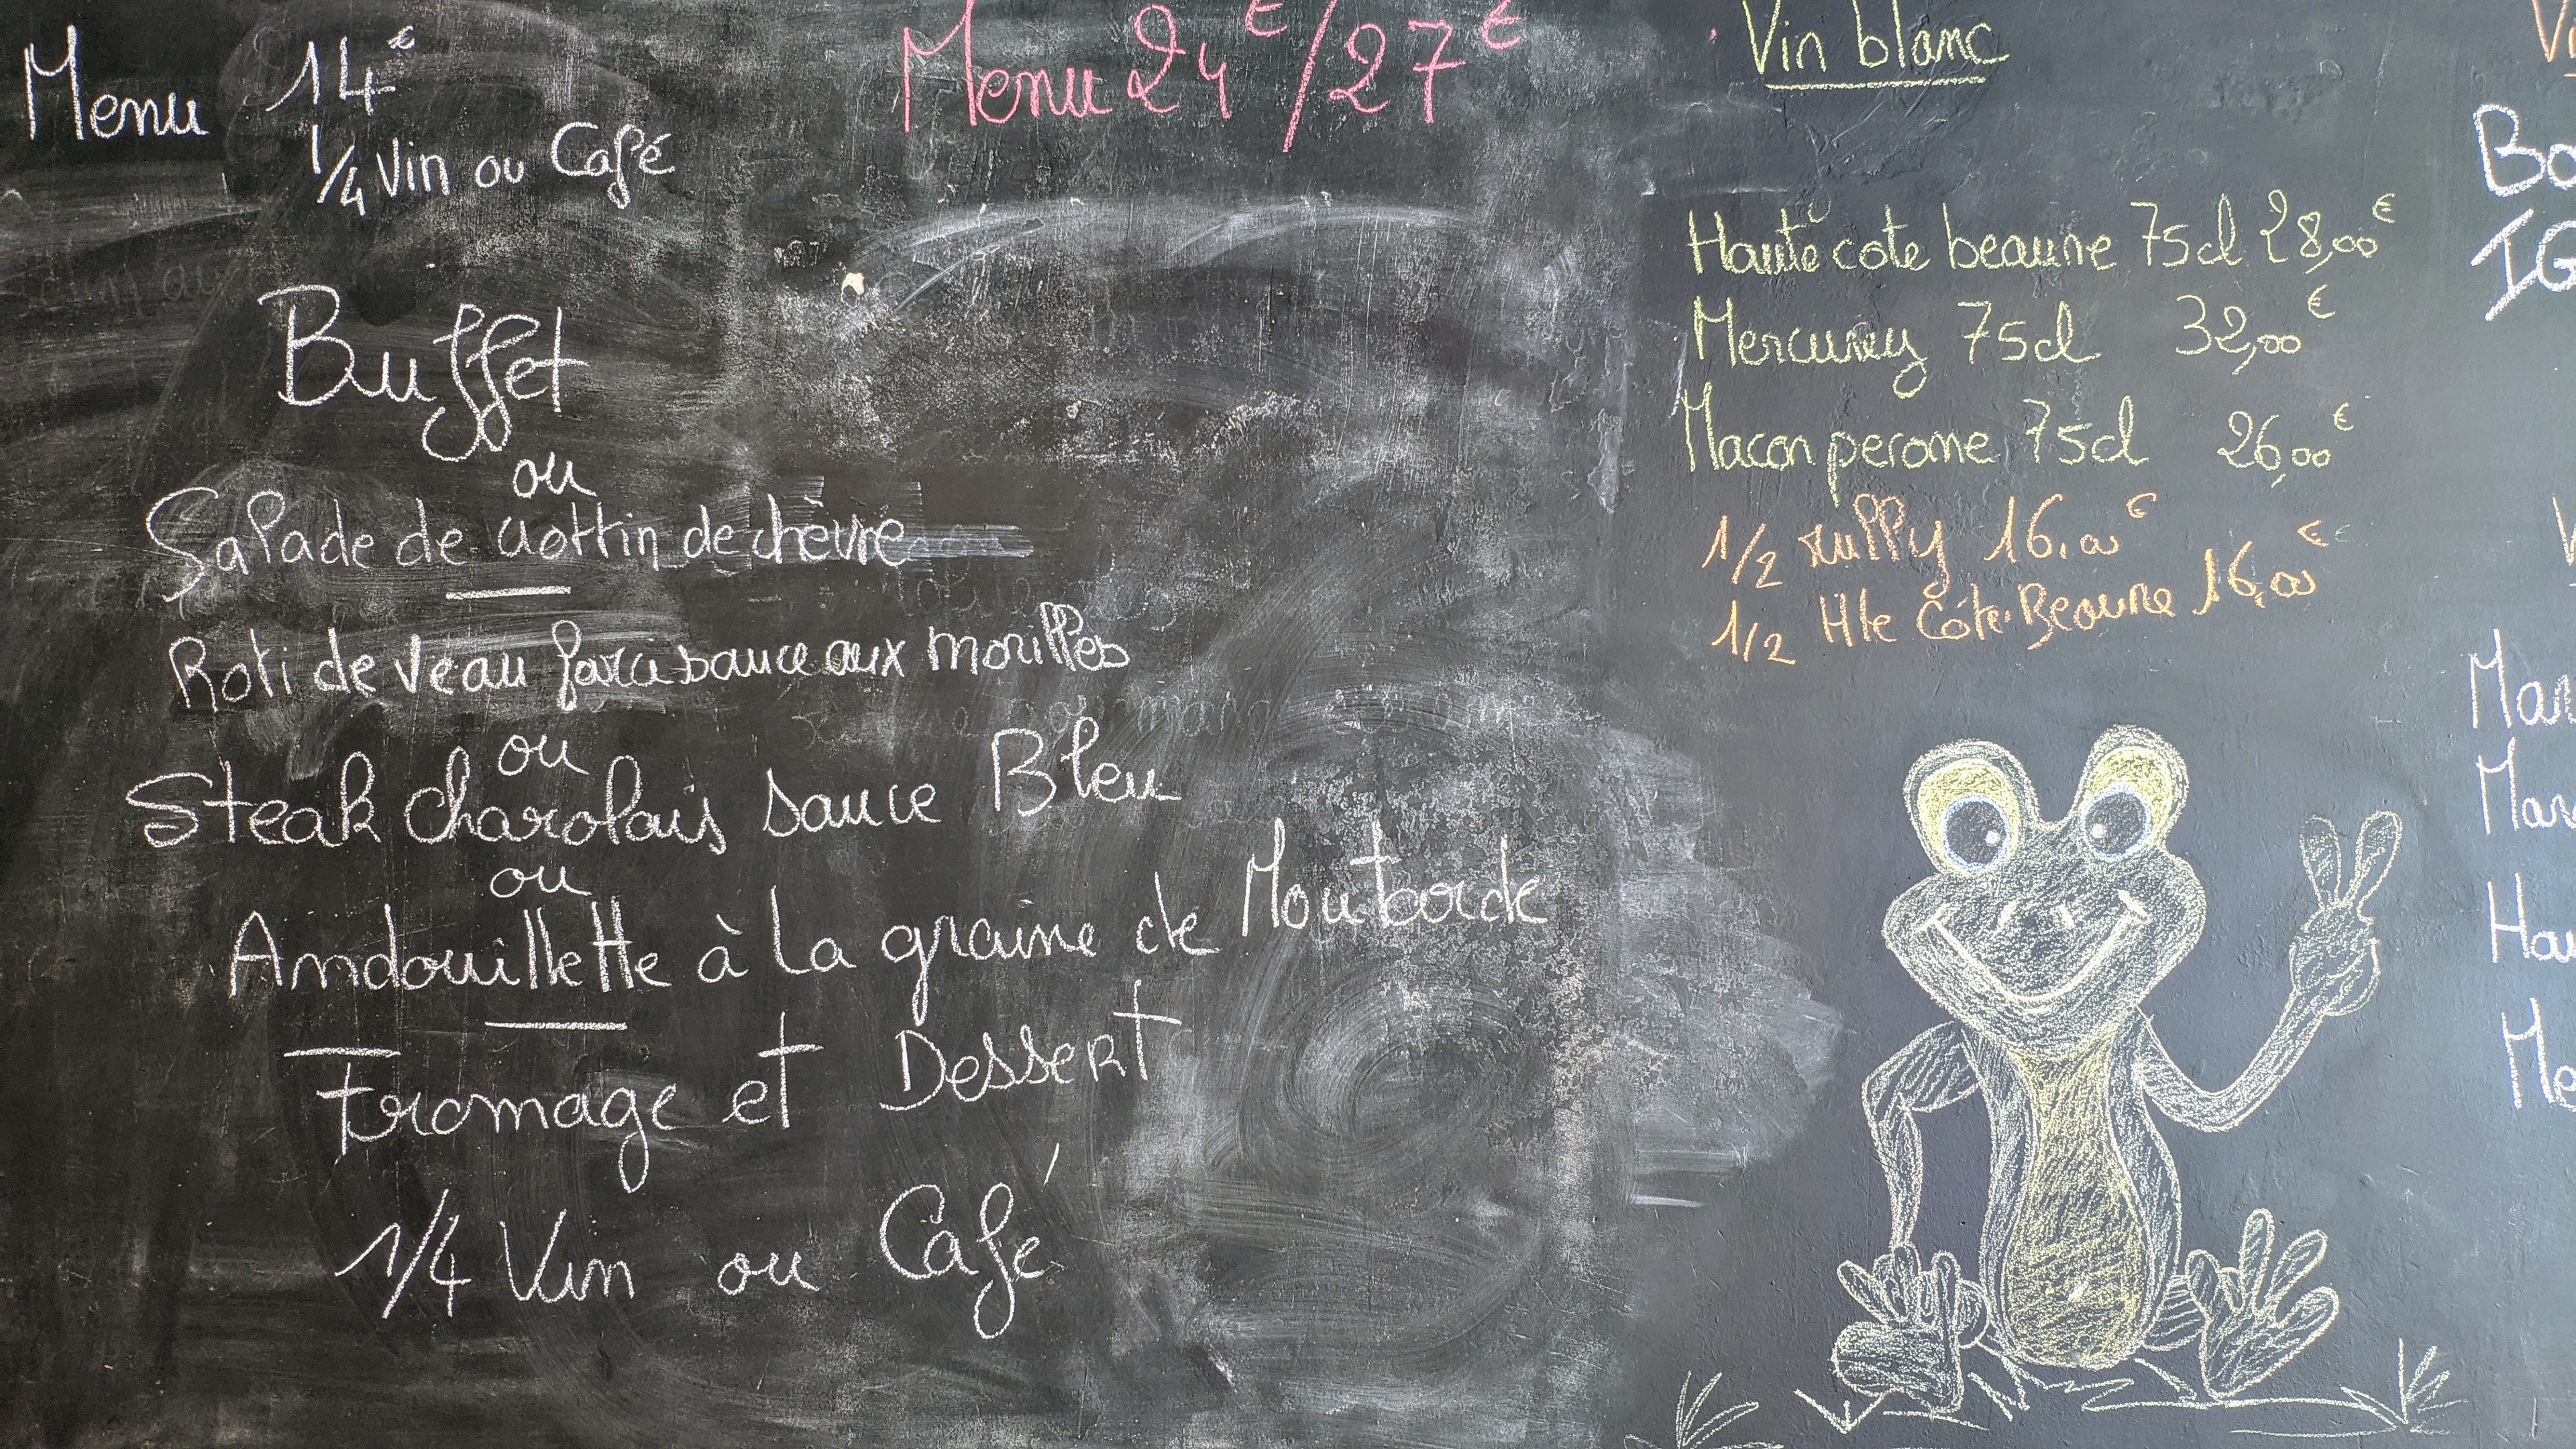 Menu 14€
1/4 Vin ou Café
Buffet
ou
Salade de crottin de chèvre
Roti de veau farci sauce aux morilles
ou
Steak charolais sauce Bleu
ou
Andouillette à la graine de Moutarde
Fromage et Dessert
1/4 Vin ou Café
Menu 24€/27€
Vin blanc
Haute cote beaune 75cl 28,00€
Mercurey 75cl 32,00€
Macon perone 75cl 26,00€
1/2 rully 16,00€
1/2 Hte Côte Beaune 16,00€
Bo
IG
Mar
Mar
Hau
Me